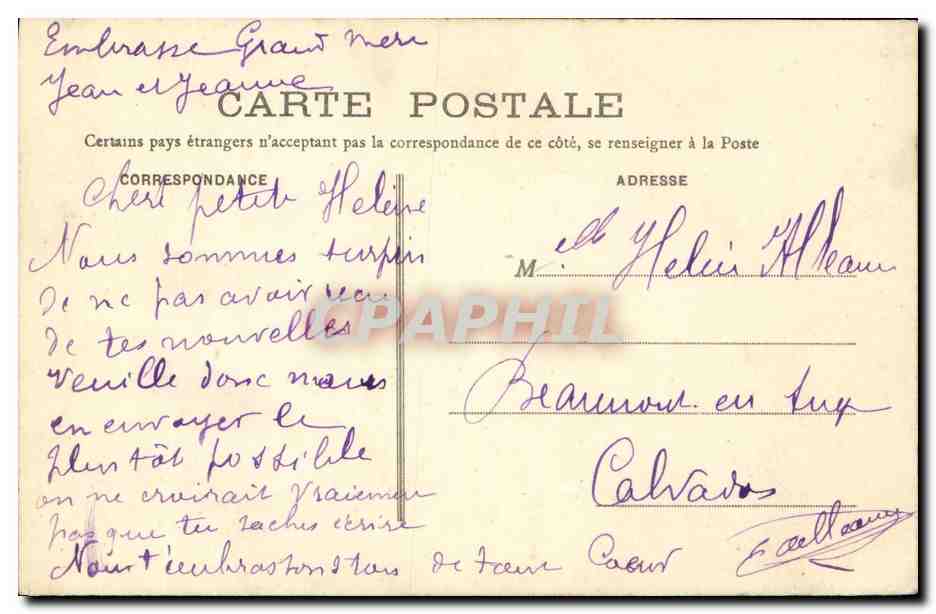 Embrasse Grand mere
Jean et Jeanne
CARTE POSTALE
Certains pays étrangers n'acceptant pas la correspondance de ce côté, se renseigner à la Poste
CORRESPONDANCE
ADRESSE
Chere petite Helene
Nous sommes surpris
de ne pas avoir reçu
de tes nouvelles
veuille donc nous
en envoyer le
plutôt possible
on ne croirait vraiment
pas que tu saches écrire
Nous t'embrassons tous de tout Coeur
Melle Helene
Beaumont en Auge
Calvados
CPAPHIL